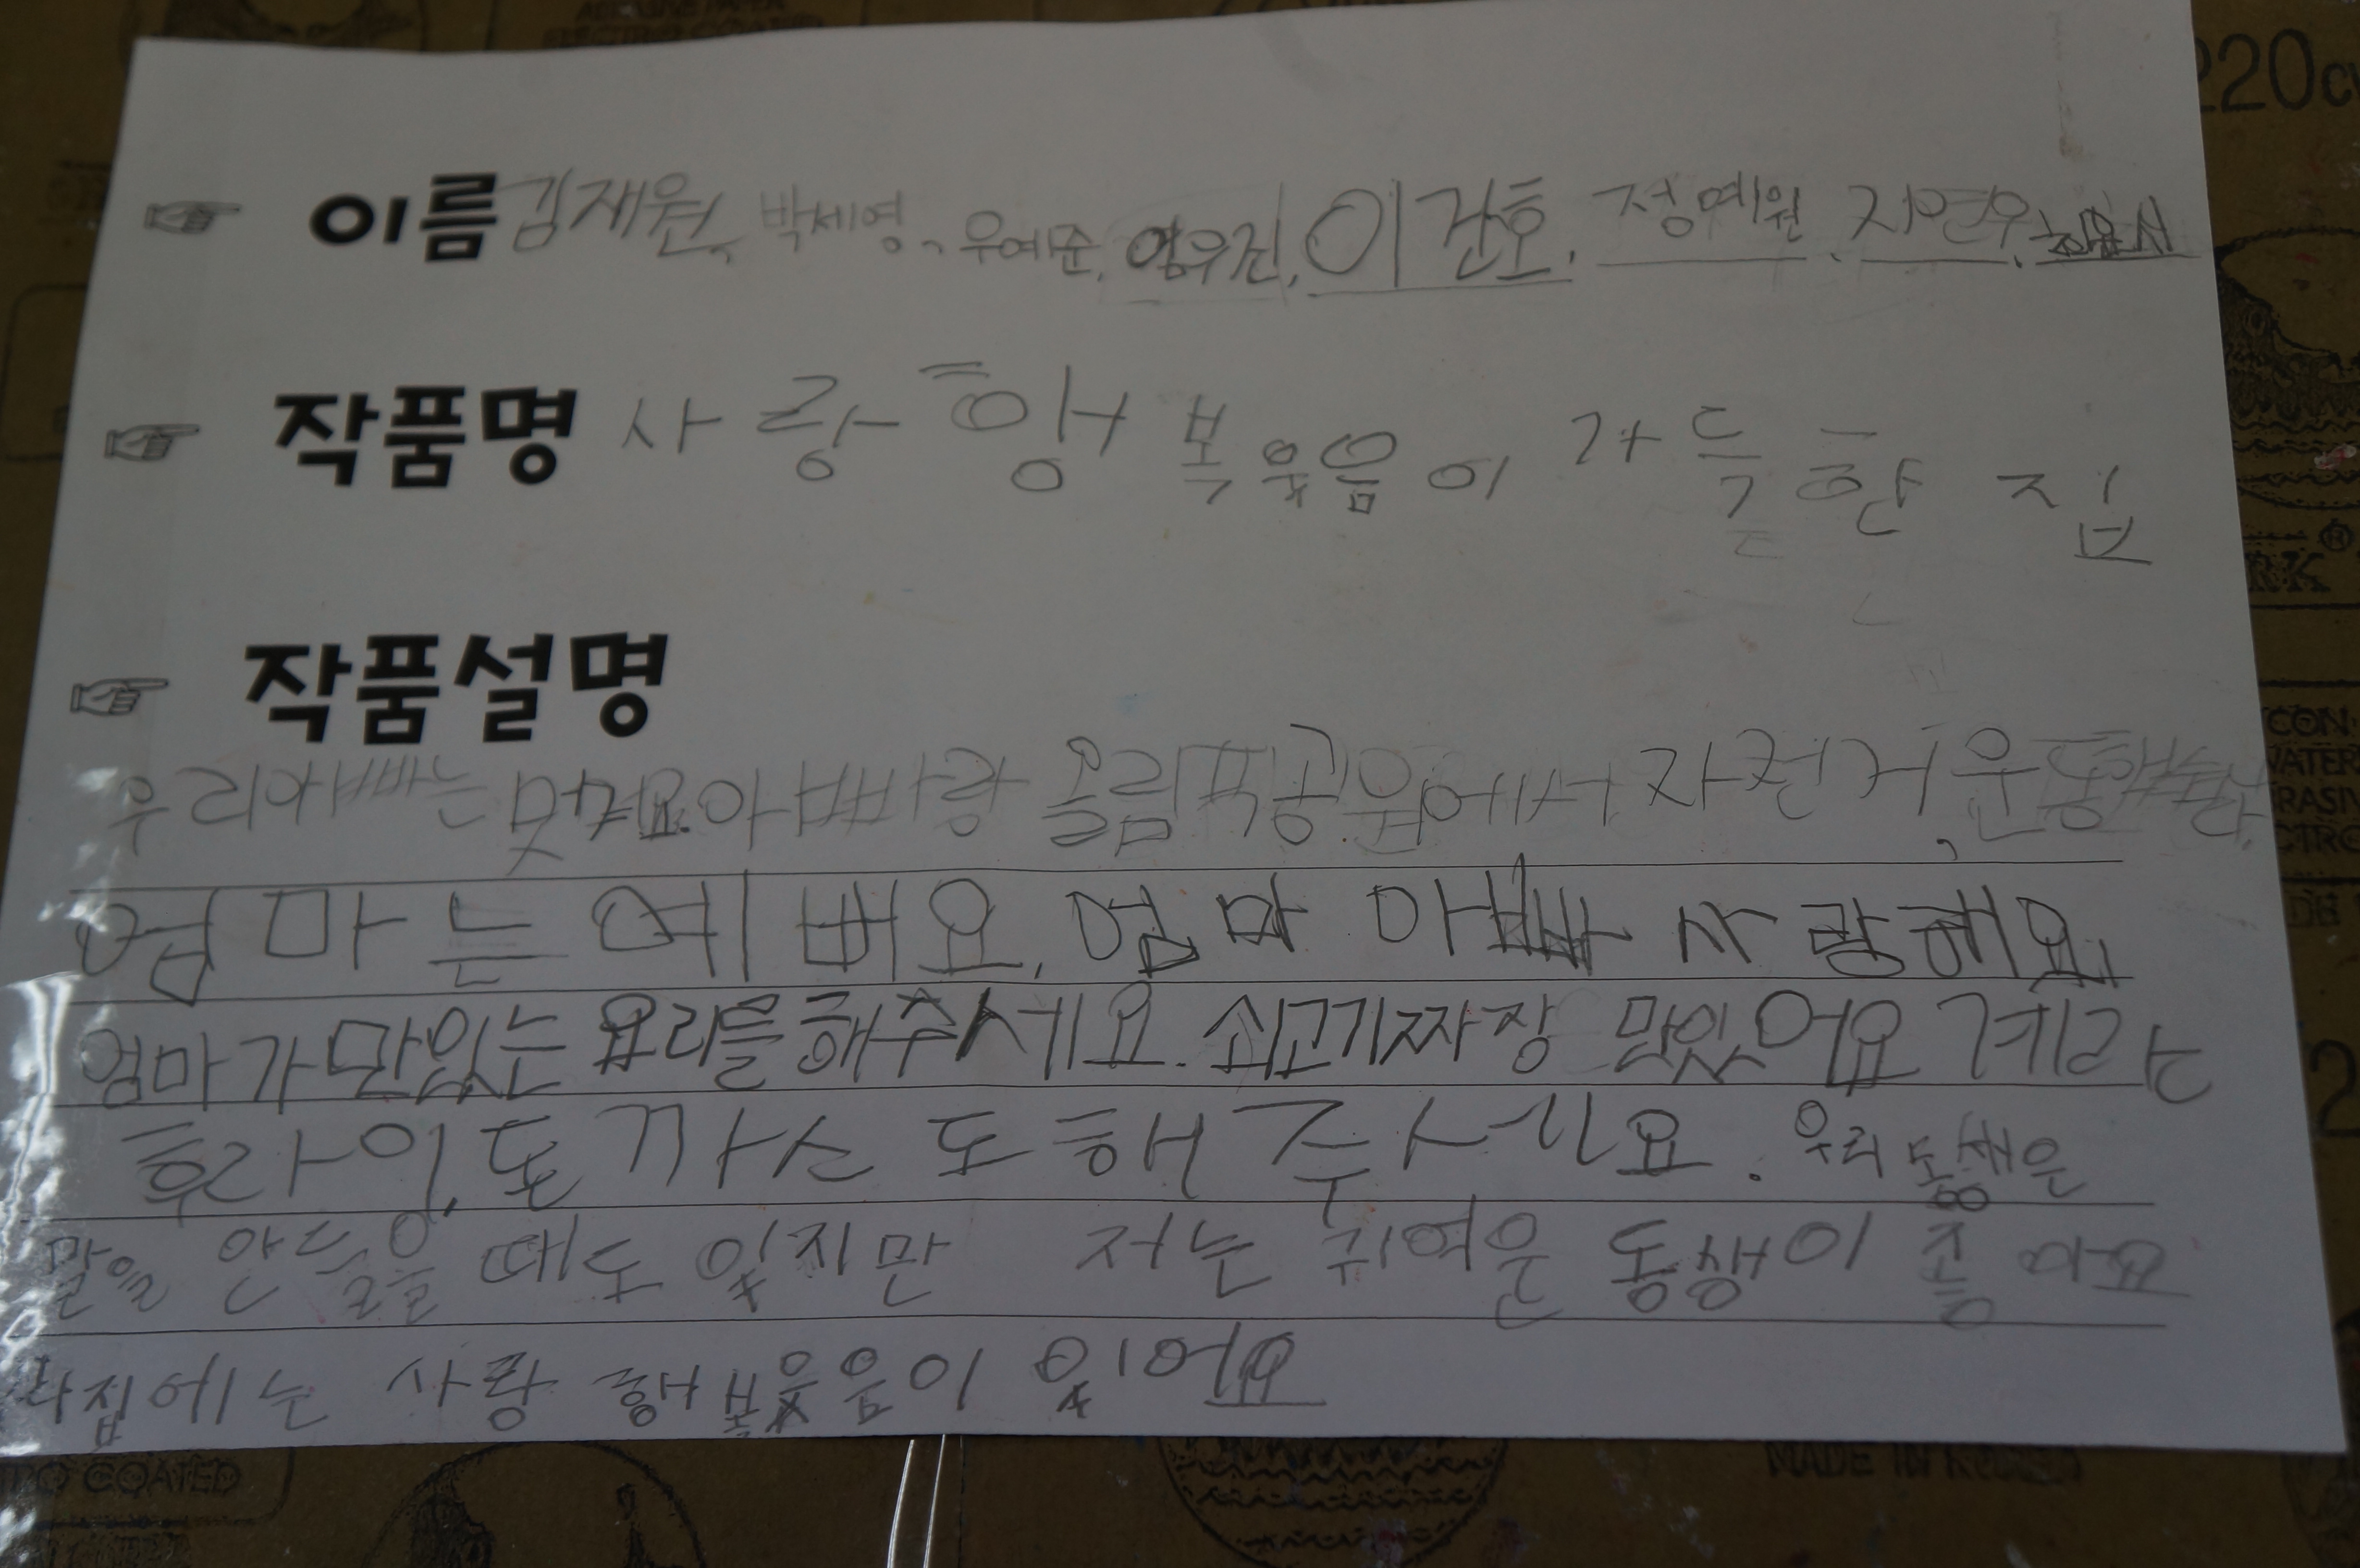 이름 김재원, 박세영, 우예준, 엄우진, 이건호, 정예원, 지연우,
작품명 사랑 행복 웃음이 가득한 집
작품설명
우리아빠는 멋져요. 아빠랑 올림픽공원에서 자전거, 운동했습니다.
엄마는 예뻐요. 엄마 아빠 사랑헤요.
엄마가 맛있는 요리를 해주세요. 쇠고기짜장 맛있어요 계란
후라이, 돈까스도 해주세요. 우리 동생은
말을 안 들을 때도 있지만 저는 귀여운 동생이 좋아요
집에는 사랑 행복 웃음이 있어요
220
MADE IN KOREA
COATED